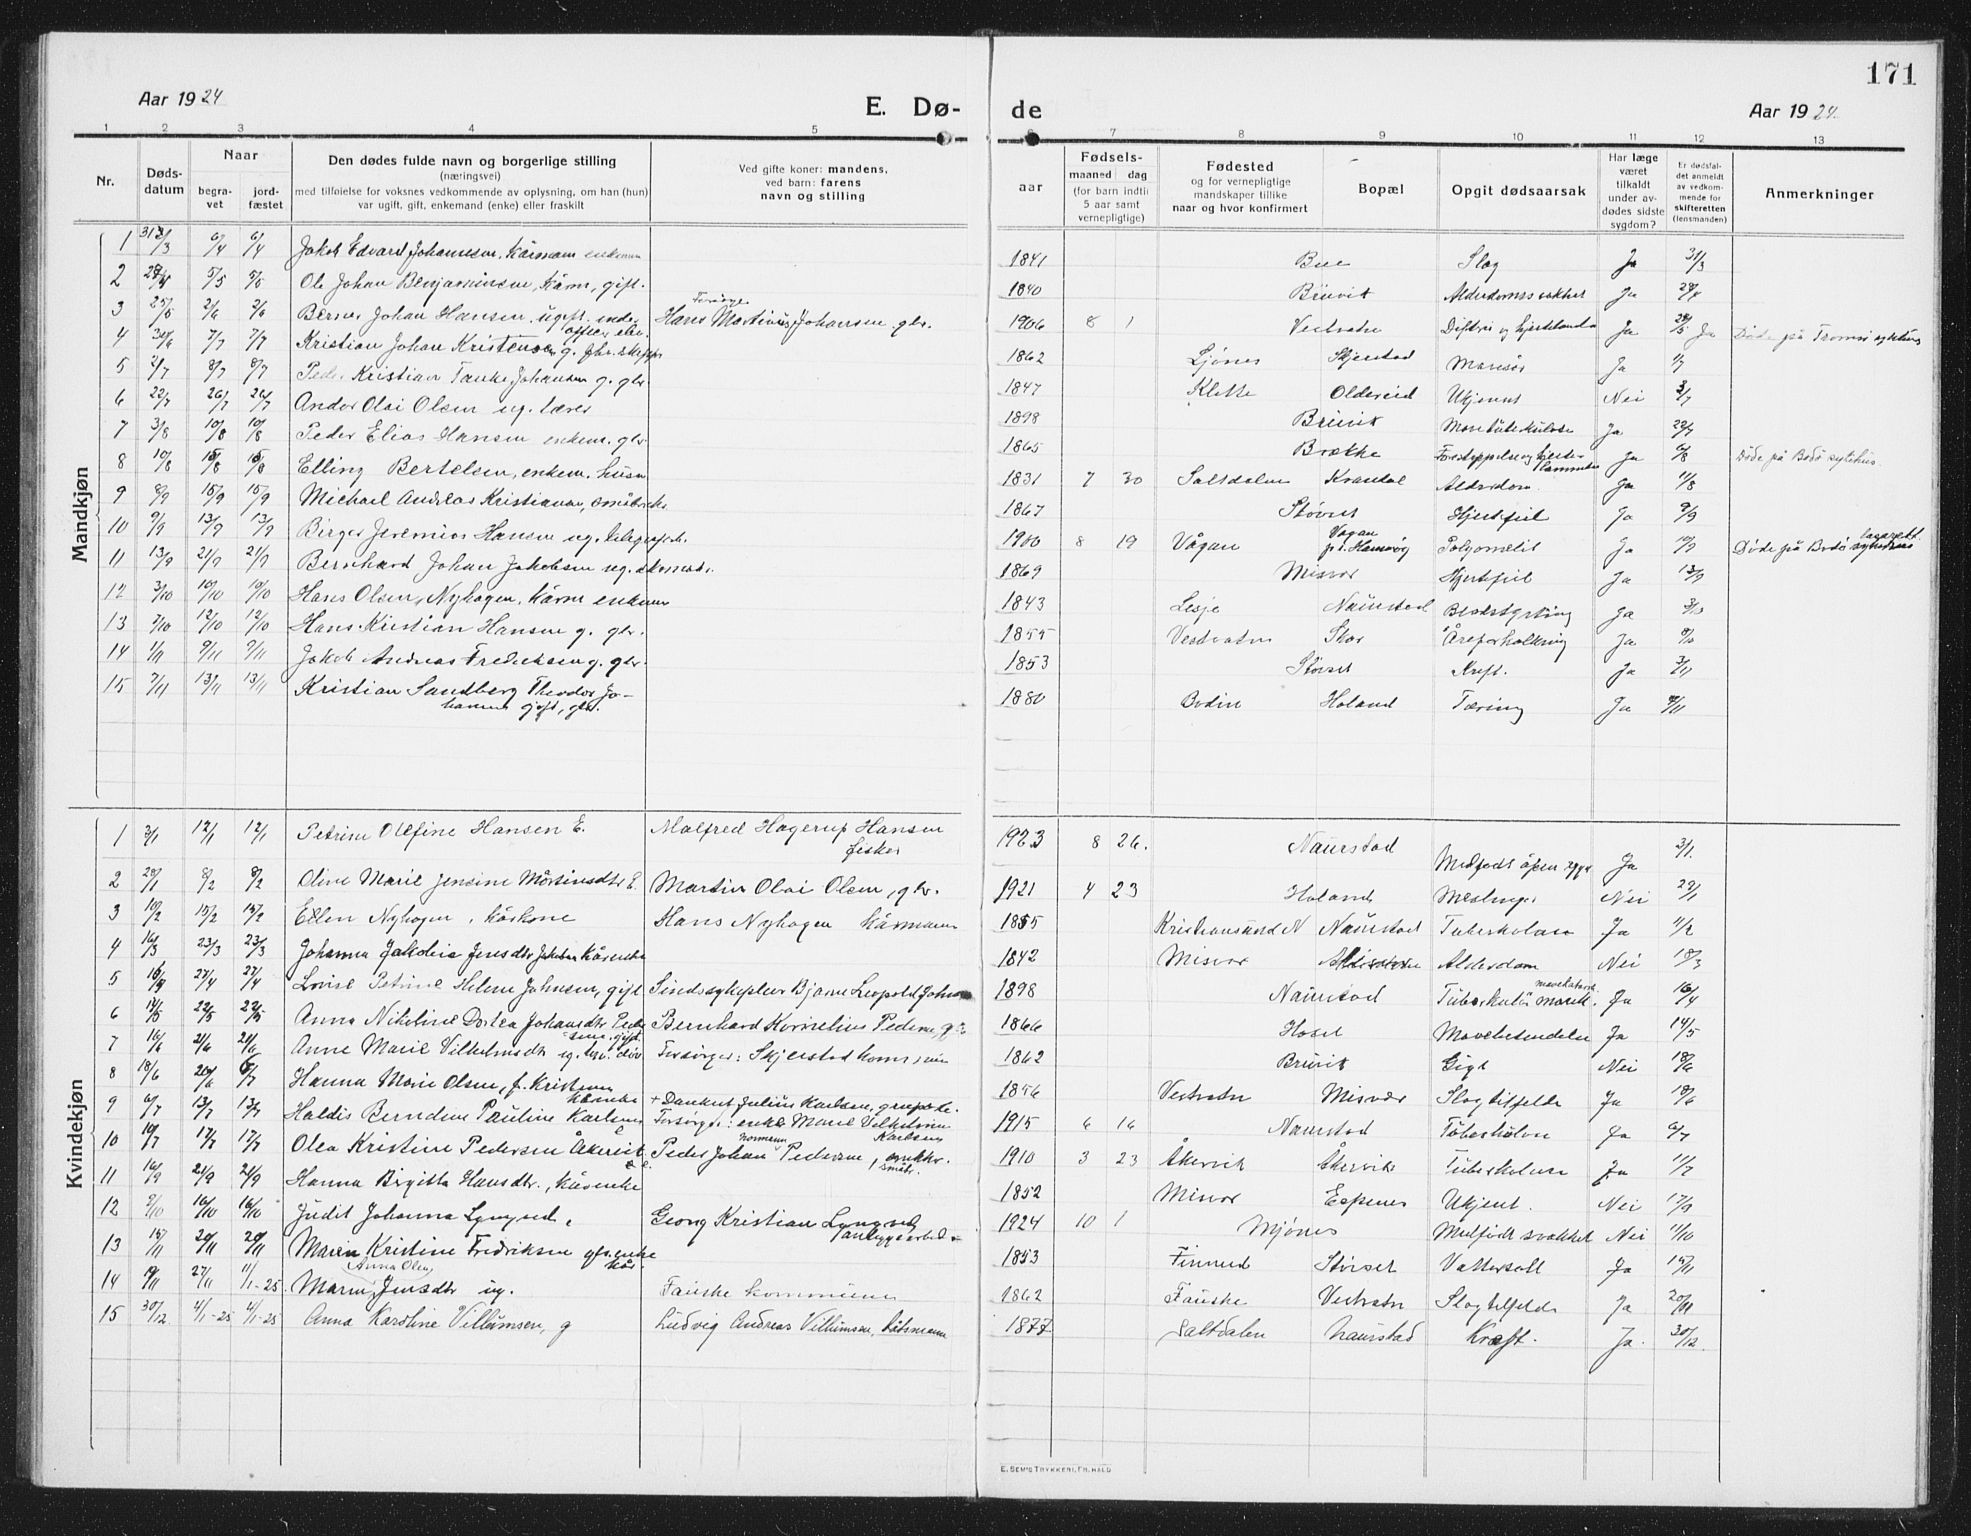 171
Aar 1924
E. Dø-
de
Aar 1924.
1 2 3 4 5 6 7 8 9 10 11 12 13
Nr.
Døds-
datum
Naar
begra-
vet
jord-
fæstet
Den dødes fulde navn og borgerlige stilling
(næringsvei)
med tilføielse for voksnes vedkommende av oplysning, om han (hun)
var ugift, gift, enkemand (enke) eller fraskilt
Ved gifte koner: mandens,
ved barn: farens
navn og stilling
aar
Fødsels-
maaned dag
(for barn indtil
5 aar samt
vernepligtige)
Fødested
og for vernepligtige
mandskaper tillike
naar og hvor konfirmert
Bopæl
Opgit dødsaarsak
Har læge
været
tilkaldt
under av-
dødes sidste
sygdom?
Er dødsfal-
det anmeldt
av vedkom-
mende for
skifteretten
(lensmanden)
Anmerkninger
Mandkjøn
1 6/4 6/4 Jakob Edvard Johannesen, Kårmann enkemann 1841 Bue Slag Ja 31/3
2 5/5 5/5 Ole Johan Benjaminsen, Kårm, gift. 1840 Bruvik Alderdomssvakhet Ja
3 25/5 2/6 2/6 Berner Johan Hansen ugift. under
officer elev. Forsørger Hans Martinus Johansen gbr. 1906 8 1 Vestvatn Ja Døde på Tromsø sykehus
4 30/6 7/7 7/7 Kristian Johan Kristensen g. fhv. skipper 1862 Ljønes Skjerstad Ja
5 2/7 8/7 8/7 Peder Kristian Tanke Johansen g. gbr. 1847 Klette Oldereid Ukjennt Nei 3/7
6 22/7 26/7 26/7 Andor Olai Olsen ug. lærer 1898 Bruvik Ja
7 3/8 10/8 10/8 Peder Elias Hansen enkem. gbr 1865 Brække Ja 6/8 Døde på Bodø sykehus.
8 10/8 15/8 15/8 Elling Bertelsen, enkem. husm 1831 7 30 Saltdalen Alderdom. Ja 11/8
9 8/9 15/9 15/9 Michael Andreas Kristiansen, småbruker 1867 Støvset Hjertefeil Ja 9/9
10 9/9 13/9 13/9 Birger Jeremias Hansen ug. telegrafist. 1900 8 19 Vågan Vågan Ja 10/9 Døde på Bodø lasarett
11 13/9 21/9 21/9 Bernhard Johan Jakobsen ug. skomaker. 1869 Misvær Hjertefeil Ja 13/9
12 3/10 10/10 10/10 Hans Olsen Nyhagen, kårm enkem 1843 Lesje Naurstad Blodstyrtning Ja 3/10
13 7/10 12/10 12/10 Hans Kristian Hansen g. gbr. 1855 Vestvatn Skar Åreforkalkning Ja
14 1/11 9/11 9/11 Jakob Andreas Fredriksen g. gbr. 1853 Støvset Kreft. Ja 3/11
15 7/11 13/11 13/11 Kristian Sandberg Theodor Jo-
hansen gift, gbr. 1880 Bodin Holand Tæring Ja
Kvindekjøn
1 3/1 12/1 12/1 Petrine Olefine Hansen E. Malfred Hagerup Hansen
fisker 1923 8 26. Naurstad Medfødt åpen rygg Ja 3/1.
2 8/2 8/2 Oline Marie Jensine Mortinsdtr E. Martin Olai Olsen, gbr. 1921 4 23 Holand Meslinger Nei
3 10/2 15/2 15/2 Ellen Nyhagen, kårkone Hans Nyhagen kårmann 1855 Kristiansund N Naurstad Tuberkulose Ja 11/2
4 16/3 23/3 23/3 Johanna Jakobia Jensdtr Jakobsen kårenke 1842 Misvær Alderdom Nei 18/3
5 27/4 27/4 Lovise Petrine Helene Johnsen, gift Sindssykepleier Bjarne Leopold Johnsen 1898 Naurstad Ja 16/4
6 22/5 22/5 Anna Nikoline Dortea Johansdtr Peder
sen gift Bernhard Kornelius Pedersen, gbr 1866 Hoset Mavebetendelse Ja 14/5
7 16/6 21/6 21/6 Anne Marie Vilhelmsdtr ug. Forsørger: Skjerstad kommune 1862 Bruvik Gigt Nei 18/6
8 18/6 Hanna Marie Olsen, f. Kristensen 1856 Vestvatn Misvær Slagtilfelde Ja 18/6
9 6/7 13/7 13/7 Haldis Berndine Pauline Karlsen + Dankert Julius Karlsen,
Forsørger: enke Marie Vilhelmine
Karlsen 1915 6 16 Naurstad Tuberkulose Ja 6/7
10 10/7 17/7 17/7 Olea Kristine Pedersen Åkervik Peder Johan normann Pedersen, 1910 3 23 Åkervik Åkervik Tuberkulose Ja 11/7
11 16/9 21/9 21/9 Hanna Birgitta Hansdtr., kårenke 1852 Misvær Espenes Ukjent. Nei 17/9
12 9/10 16/10 16/10 Judit Johanna Lyngved, Georg Kristian Lyngved
anlæggsarbeid. 1924 10 1 Mjønes Medfødt svakhet Nei 11/10
13 15/11 20/11 20/11 Maren Kristine Fredriksen enke
kår. 1853 Finned Støvset Vattersott Ja 15/11
14 19/11 27/11 11/1-25 Maren Anna Olea Jensdtr ug. Fauske kommune 1862 Fauske Vestvatn Slagtilfelde Ja 20/11
15 30/12 4/1-25 4/1-25 Anna Karoline Villumsen, g Ludvig Andreas Villumsen, båtsmann 1877 Saltdalen Naurstad Kræft. Ja. 30/12
E. SEM'S TRYKKERI, FR.HALD